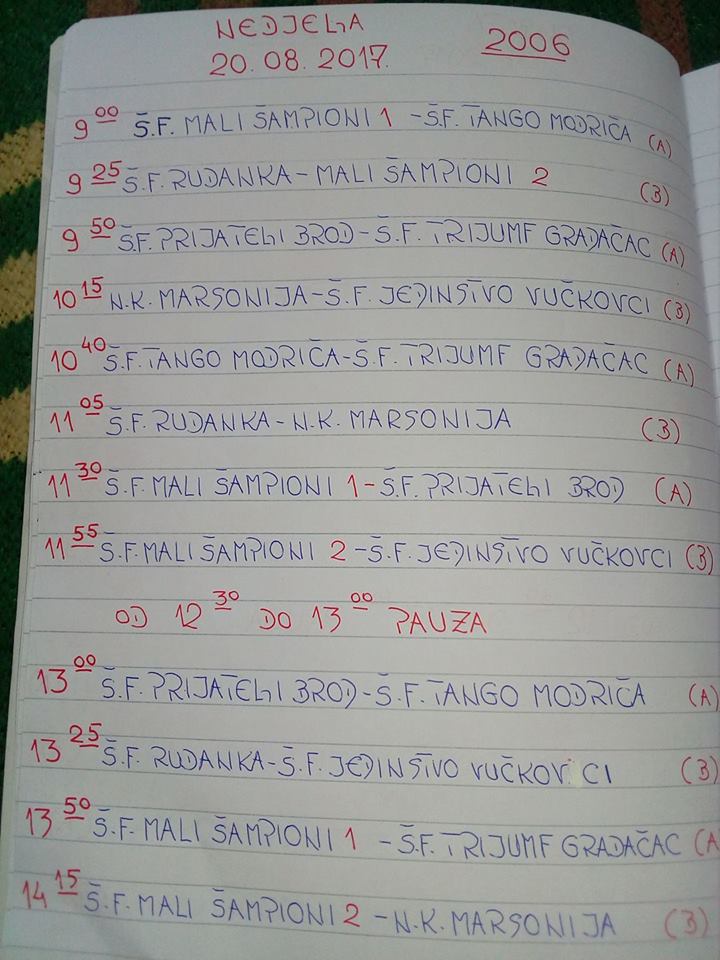 NEDJELJA
20.08.2017. 2006
9 00 Š.F. MALI ŠAMPIONI 1 - Š.F. TANGO MODRIČA (A)
9 25 Š.F. RUDANKA - MALI ŠAMPIONI 2 (B)
9 50 Š.F. PRIJATELJI BROD - Š.F. TRIJUMF GRADAČAC (A)
10 15 N.K. MARSONIJA - Š.F. JEDINSTVO VUČKOVCI (B)
10 40 Š.F. TANGO MODRIČA - Š.F. TRIJUMF GRADAČAC (A)
11 05 Š.F. RUDANKA - N.K. MARSONIJA (B)
11 30 Š.F. MALI ŠAMPIONI 1 - Š.F. PRIJATELJI BROD (A)
11 55 Š.F. MALI ŠAMPIONI 2 - Š.F. JEDINSTVO VUČKOVCI (B)
OD 12 30 DO 13 00 PAUZA
13 00 Š.F. PRIJATELJI BROD - Š.F. TANGO MODRIČA (A)
13 25 Š.F. RUDANKA - Š.F. JEDINSTVO VUČKOVCI (B)
13 50 Š.F. MALI ŠAMPIONI 1 - Š.F. TRIJUMF GRADAČAC (A
14 15 Š.F. MALI ŠAMPIONI 2 - N.K. MARSONIJA (B)